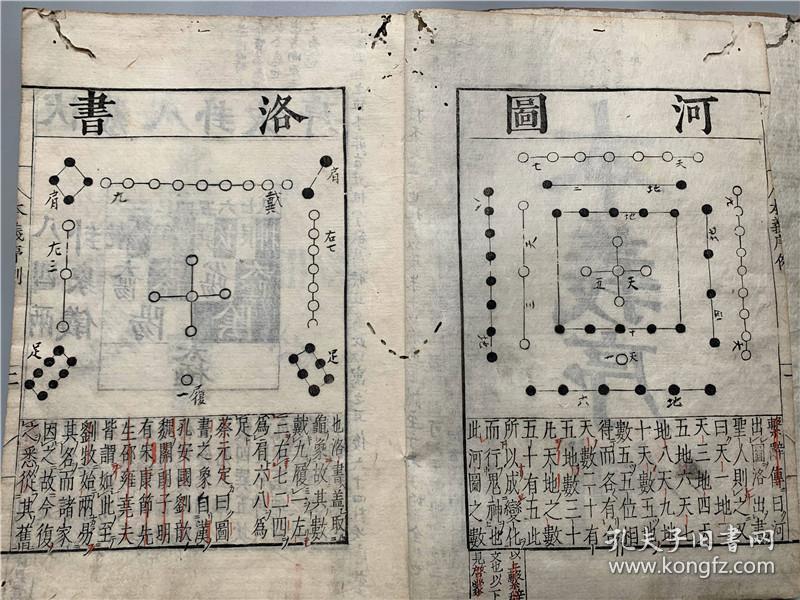 河圖
七 天
二 地
地
天 三
五 天
天
一
六 地
繫辭傳曰河
出圖洛出書
聖人則之又
曰天一地二
天三地四天
五地六天七
地八天九地
十天數五地
數五五位相
得而各有合
天數二十有
五地數三十
凡天地之數
五十有五此
所以成變化
而行鬼神也
此河圖之數
以上繫辭
文也以下
見啓蒙
洛書
肩
戴 九
肩
右七
左三
足
履一
足
也洛書蓋取
龜象故其數
戴九履一左
三右七二四
為肩六八為
足
蔡元定曰圖
書之象自漢
孔安國劉歆
魏關朗子明
有宋康節先
生邵雍堯夫
皆謂如此至
劉牧始兩易
其名而諸家
因之故今復
之悉從其舊
本義序例
孔夫子旧书网
www.kongfz.com